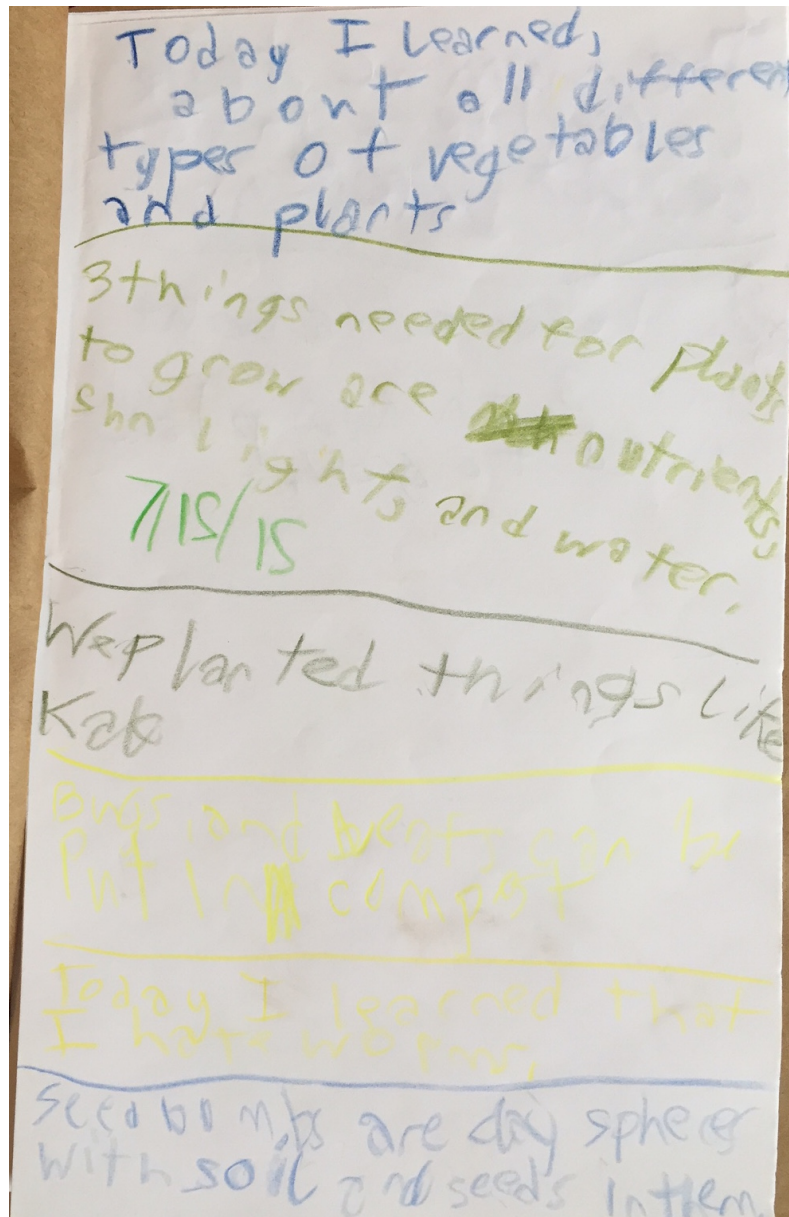 Today I Learned,
about all different
types of vegetables
and plants
3 things needed for plants
to grow are nutrients,
shn lights, and water.
7/15/15
We planted things like
Kale
Bugs, and can be
Put in compost
Today I learned that
I hate worms.
seed bombs are clay spheers
with soil and seeds in them.